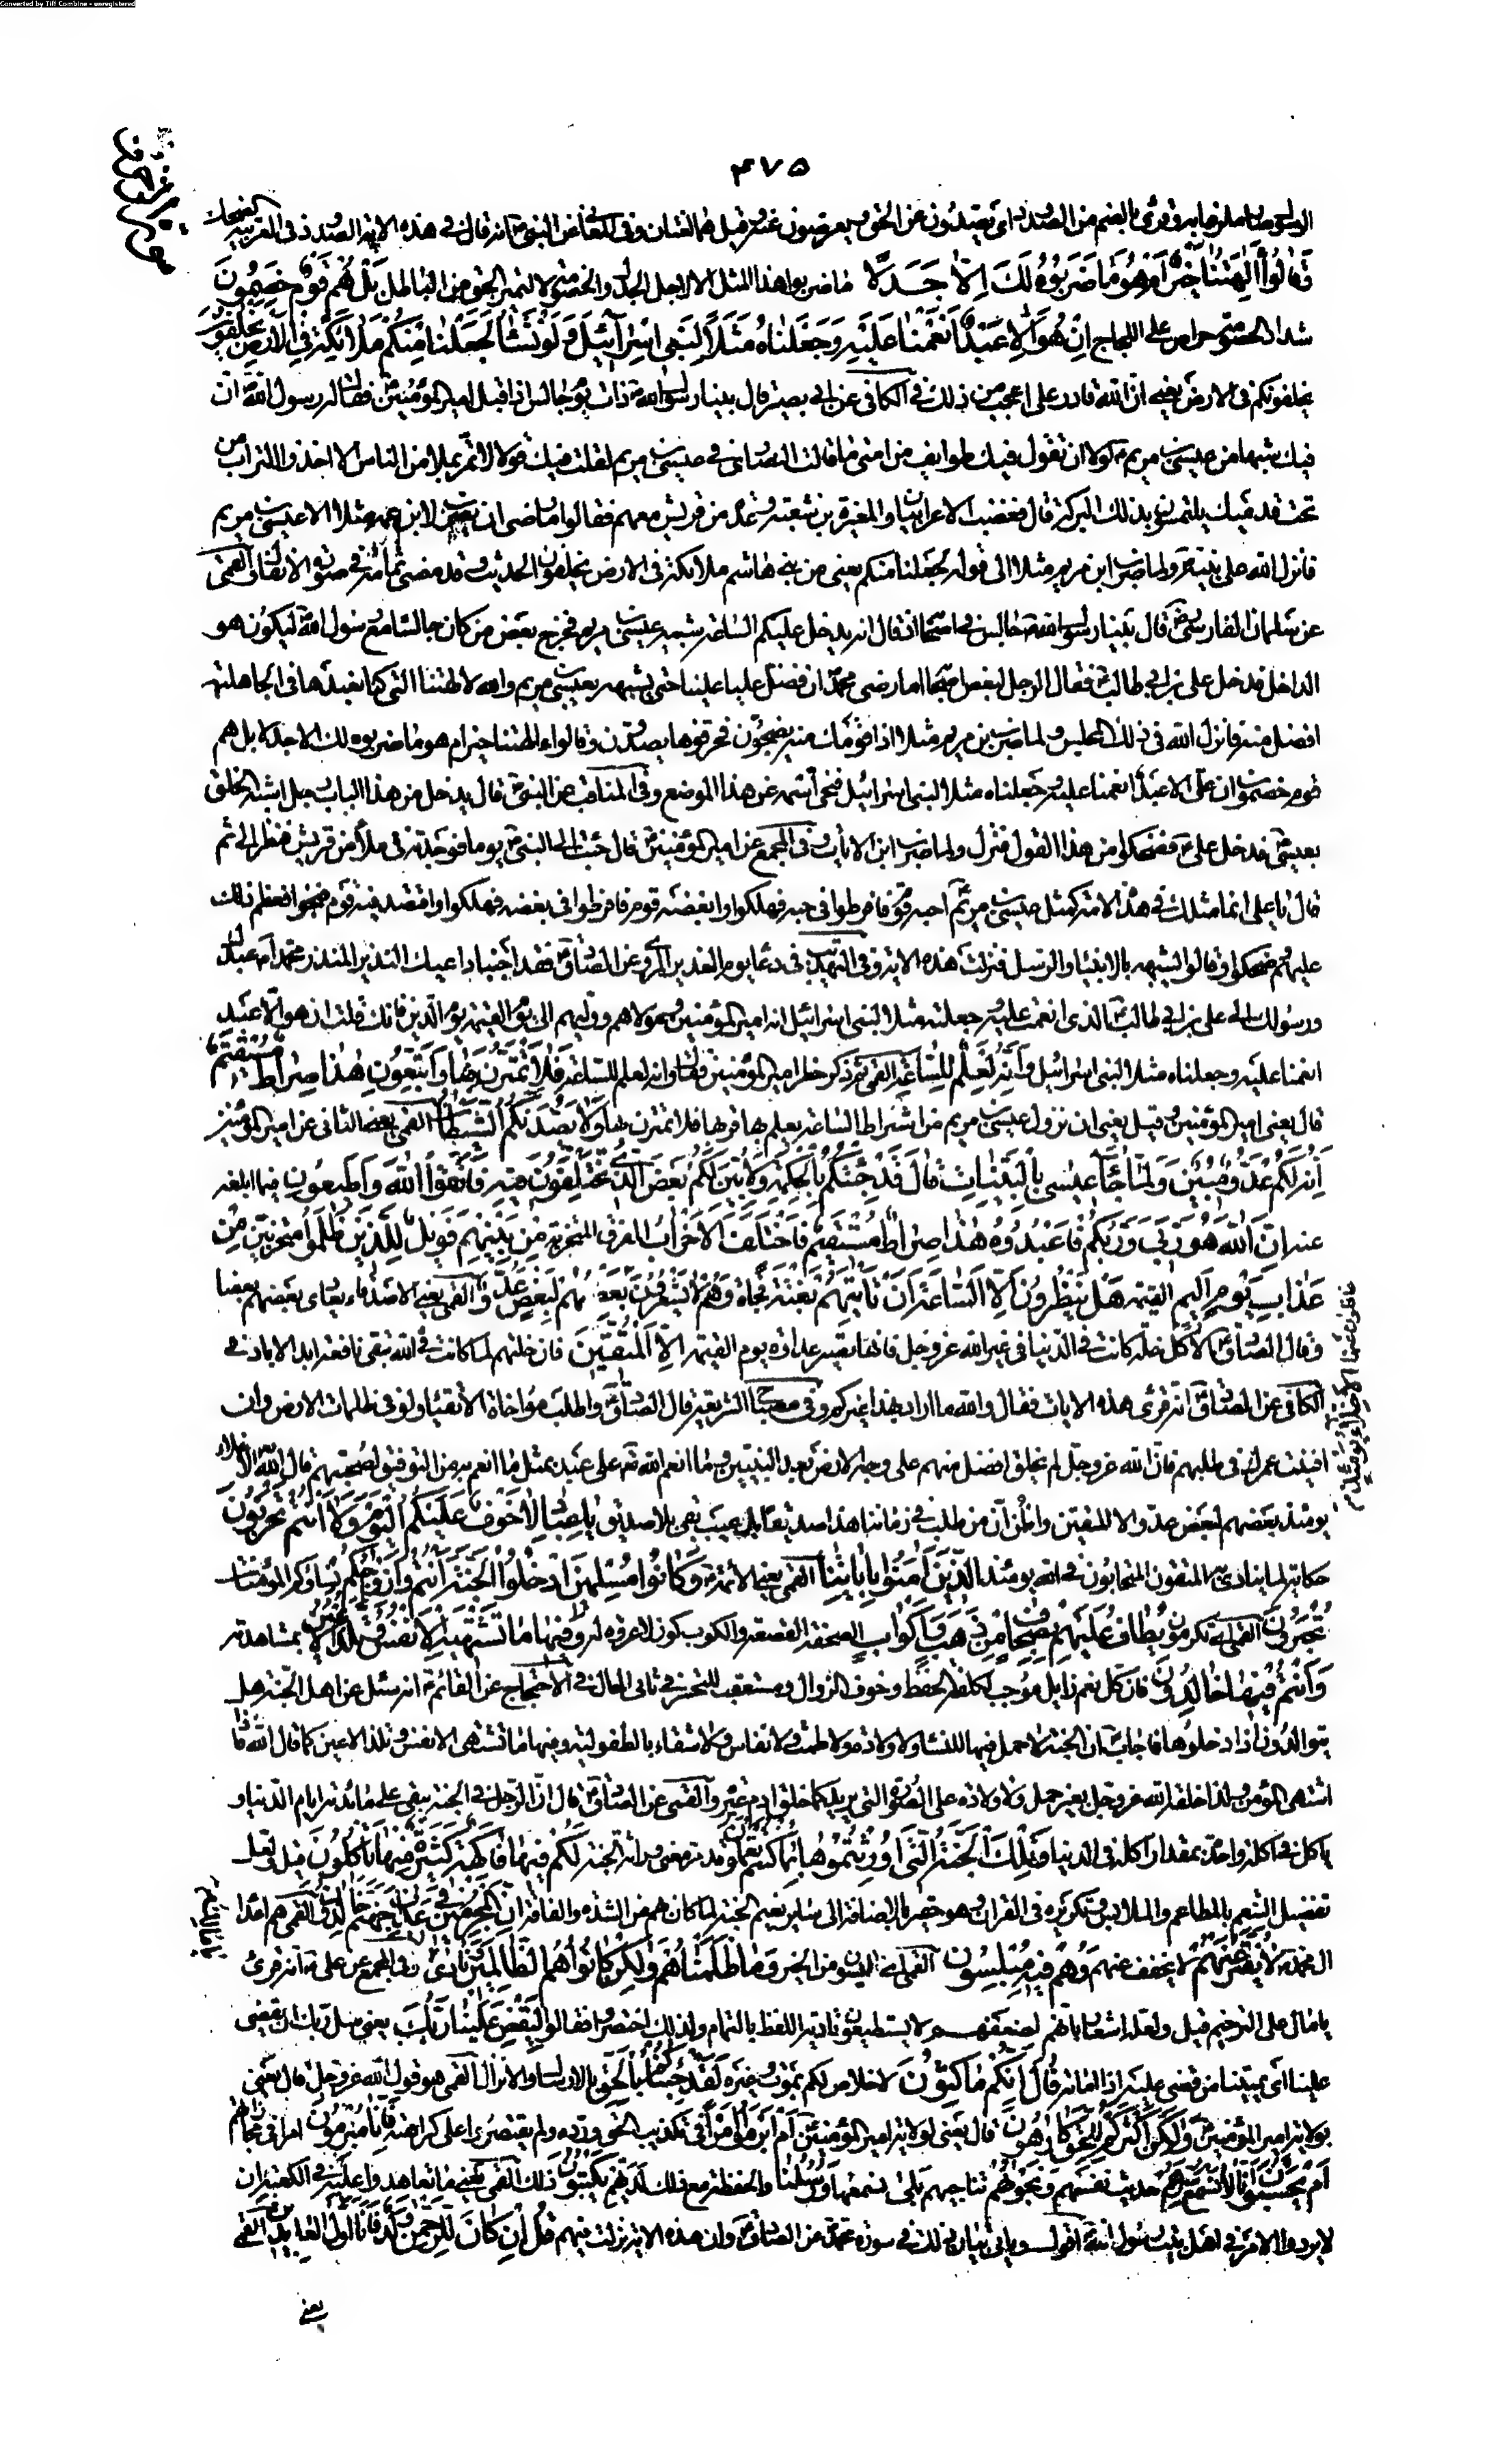 Converted by Tiff Combine - unregistered
۴۷۵
صار ملزما به وقرئ بالضم من الصدود اى يصدون عن الحق ويعرضون عنه وقيل هما لغتان وفى المعانى عن النبى انه قال فى هذه الاية الصدود فى العربية الضحك
وَقَالُوا أَآلِهَتُنَا خَيْرٌ أَمْ هُوَ مَا ضَرَبُوهُ لَكَ إِلَّا جَدَلًا ما ضربوا هذا المثل الا لاجل الجدل والخصومة لا لتميز الحق من الباطل بَلْ هُمْ قَوْمٌ خَصِمُونَ
شداد الخصومة حراص على اللجاج إِنْ هُوَ إِلَّا عَبْدٌ أَنْعَمْنَا عَلَيْهِ وَجَعَلْنَاهُ مَثَلًا لِبَنِي إِسْرَائِيلَ وَلَوْ نَشَاءُ لَجَعَلْنَا مِنْكُمْ مَلَائِكَةً فِي الْأَرْضِ يَخْلُفُونَ
يخلفونكم فى الارض يعنى ان الله قادر على اعجب من ذلك فى الكافى عن ابى بصير قال بينا رسول الله ذات يوم جالس اذ اقبل امير المؤمنين فقال له رسول الله ان
فيك شبها من عيسى بن مريم لولا ان تقول فيك طوايف من امتى ما قالت النصارى فى عيسى بن مريم لقلت فيك قولا لا تمر بملأ من الناس الا اخذوا التراب من
تحت قدميك يلتمسون بذلك البركة قال فغضب الاعرابيان والمغيرة بن شعبة وعدة من قريش معهم فقالوا ما رضى ان يضرب لابن عمه مثلا الا عيسى بن مريم
فانزل الله على نبيه ولما ضرب ابن مريم مثلا الى قوله لجعلنا منكم يعنى من بنى هاشم ملائكة فى الارض يخلفون الحديث وقد مضى تمامه فى سورة الانفال القمى
عن سلمان الفارسى قال بينا رسول الله جالس فى اصحابه اذ قال انه يدخل عليكم الساعة شبيه عيسى بن مريم فخرج بعض من كان جالسا مع رسول الله ليكون هو
الداخل فدخل على بن ابى طالب فقال الرجل لبعض اصحابه اما رضى محمد ان فضل عليا علينا حتى يشبهه بعيسى بن مريم والله لالهتنا التى كنا نعبدها فى الجاهلية
افضل منه فانزل الله فى ذلك المجلس ولما ضرب بن مريم مثلا اذا قومك منه يضجون فحرفوها يصدون وقالوا ءالهتنا خير ام هو ما ضربوه لك الا جدلا بل هم
قوم خصمون ان على الا عبد انعمنا عليه وجعلناه مثلا لبنى اسرائيل فمحى اسمه عن هذا الموضع وفى المناقب عن النبى قال يدخل من هذا الباب رجل اشبه الخلق
بعيسى فدخل على فضحكوا من هذا القول فنزل ولما ضرب ابن الايات وفى المجمع عن امير المؤمنين قال جئت الى النبى يوما فوجدته فى ملأ من قريش فنظر الى ثم
قال يا على انما مثلك فى هذه الامة كمثل عيسى بن مريم احبه قوم فافرطوا فى حبه فهلكوا وابغضه قوم فافرطوا فى بغضه فهلكوا واقتصد فيه قوم فنجوا فعظم ذلك
عليهم فضحكوا وقالوا يشبهه بالانبياء والرسل فنزلت هذه الاية وفى التهذيب فى دعاء يوم الغدير المروى عن الصادق فقد اجبنا داعيك النذير المنذر محمدا عبدك
ورسولك الى على بن ابى طالب الذى انعمت عليه وجعلته مثلا لبنى اسرائيل انه امير المؤمنين ومولاهم ووليهم الى يوم القيمة يوم الدين فانك قلت ان هو الا عبد
انعمنا عليه وجعلناه مثلا لبنى اسرائيل وَإِنَّهُ لَعِلْمٌ لِلسَّاعَةِ القمى ثم ذكر خطر امير المؤمنين فقال وانه لعلم للساعة فَلَا تَمْتَرُنَّ بِهَا وَاتَّبِعُونِ هَٰذَا صِرَاطٌ مُسْتَقِيمٌ
قال يعنى امير المؤمنين وقيل يعنى ان نزول عيسى بن مريم من اشراط الساعة يعلم بها قربها فلا تمترن بها وَلَا يَصُدَّنَّكُمُ الشَّيْطَانُ القمى يعنى الثانى عن امير المؤمنين
إِنَّهُ لَكُمْ عَدُوٌّ مُبِينٌ وَلَمَّا جَاءَ عِيسَى بِالْبَيِّنَاتِ قَالَ قَدْ جِئْتُكُمْ بِالْحِكْمَةِ وَلِأُبَيِّنَ لَكُمْ بَعْضَ الَّذِي تَخْتَلِفُونَ فِيهِ فَاتَّقُوا اللَّهَ وَأَطِيعُونِ فيما ابلغه
عنه إِنَّ اللَّهَ هُوَ رَبِّي وَرَبُّكُمْ فَاعْبُدُوهُ هَٰذَا صِرَاطٌ مُسْتَقِيمٌ فَاخْتَلَفَ الْأَحْزَابُ الفرق المتحزبة مِنْ بَيْنِهِمْ فَوَيْلٌ لِلَّذِينَ ظَلَمُوا المتحزبين مِنْ
عَذَابِ يَوْمٍ أَلِيمٍ القيمة هَلْ يَنْظُرُونَ إِلَّا السَّاعَةَ أَنْ تَأْتِيَهُمْ بَغْتَةً فجاة وَهُمْ لَا يَشْعُرُونَ بَعْضُهُمْ لِبَعْضٍ عَدُوٌّ القمى يعنى الاصدقاء يعادى بعضهم بعضا
وقال الصادق الا كل خلة كانت فى الدنيا فى غير الله عز وجل فانها تصير عداوة يوم القيمة إِلَّا الْمُتَّقِينَ فان خلتهم لما كانت فى الله تبقى نافعة ابد الاباد فى
الكافى عن الصادق انه قرئ هذه الايات فقال والله ما اراد بهذا غيركم وفى مصباح الشريعة قال الصادق واطلب مؤاخاة الاتقياء ولو فى ظلمات الارض وان
افنيت عمرك فى طلبهم فان الله عز وجل لم يخلق افضل منهم على وجه الارض بعد النبيين وما انعم الله على عبد بمثل ما انعم به من التوفيق لصحبتهم قال الله الاخلاء
يومئذ بعضهم لبعض عدو الا المتقين واظن ان من طلب فى زماننا هذا صديقا بلا عيب بقى بلا صديق يَا عِبَادِ لَا خَوْفٌ عَلَيْكُمُ الْيَوْمَ وَلَا أَنْتُمْ تَحْزَنُونَ
حكاية لما ينادى به المتقون المتحابون فى الله يومئذ الَّذِينَ آمَنُوا بِآيَاتِنَا القمى يعنى الائمة وَكَانُوا مُسْلِمِينَ ادْخُلُوا الْجَنَّةَ أَنْتُمْ وَأَزْوَاجُكُمْ نساؤكم المؤمنات
تُحْبَرُونَ القمى اى تكرمون يُطَافُ عَلَيْهِمْ بِصِحَافٍ مِنْ ذَهَبٍ وَأَكْوَابٍ الصحفة القصعة والكوب كوز لا عروة له وَفِيهَا مَا تَشْتَهِيهِ الْأَنْفُسُ وَتَلَذُّ الْأَعْيُنُ بمشاهدته
وَأَنْتُمْ فِيهَا خَالِدُونَ فان كل نعيم زايل موجب لكلفة الحفظ وخوف الزوال ومستعقب للتحسر فى ثانى الحال فى الاحتجاج عن القائم انه سئل عن اهل الجنة هل
يتوالدون اذا دخلوها فاجاب ان الجنة لا حمل فيها للنساء ولا ولادة ولا طمث ولا نفاس ولا شقاء بالطفولية وفيها ما تشتهى الانفس وتلذ الاعين كما قال الله فاذا
اشتهى المؤمن ولدا خلقه الله عز وجل بغير حمل ولا ولادة على الصورة التى يريد كما خلق ادم عبرة والقمى عن الصادق قال ان الرجل فى الجنة يبقى على مائدته ايام الدنيا و
ياكل فى اكلة واحدة بمقدار اكله فى الدنيا وَتِلْكَ الْجَنَّةُ الَّتِي أُورِثْتُمُوهَا بِمَا كُنْتُمْ تَعْمَلُونَ وقد مر معنى وراثة الجنة لَكُمْ فِيهَا فَاكِهَةٌ كَثِيرَةٌ مِنْهَا تَأْكُلُونَ قيل ولعل
تفضيل التنعم بالمطاعم والملابس وتكريره فى القران وهو حقير بالاضافة الى ساير نعيم الجنة لما كان بهم من الشدة والفاقة إِنَّ الْمُجْرِمِينَ فِي عَذَابِ جَهَنَّمَ خَالِدُونَ القمى هم اعداء
ال محمد لَا يُفَتَّرُ عَنْهُمْ لا يخفف عنهم وَهُمْ فِيهِ مُبْلِسُونَ القمى اى ايسون من الخير وَمَا ظَلَمْنَاهُمْ وَلَٰكِنْ كَانُوا هُمُ الظَّالِمِينَ فى المجمع عن على انه قرئ
يا مال على الترخيم قيل ولعله اشعار بانهم لضعفهم لا يستطيعون تادية اللفظ بالتمام ولذلك اختصروا فقالوا لِيَقْضِ عَلَيْنَا رَبُّكَ يعنى سل ربك ان يقضى
علينا اى يميتنا من قضى عليه اذا اماته قَالَ إِنَّكُمْ مَاكِثُونَ لا خلاص لكم بموت وغيره لَقَدْ جِئْنَاكُمْ بِالْحَقِّ بالارسال والانزال القمى هو قول الله عز وجل قال يعنى
بولاية امير المؤمنين وَلَٰكِنَّ أَكْثَرَكُمْ لِلْحَقِّ كَارِهُونَ قال يعنى لولاية امير المؤمنين أَمْ أَبْرَمُوا أَمْرًا فى تكذيب الحق ورده ولم يقتصروا على كراهته فَإِنَّا مُبْرِمُونَ امرا فى مجازاتهم
أَمْ يَحْسَبُونَ أَنَّا لَا نَسْمَعُ سِرَّهُمْ حديث نفسهم وَنَجْوَاهُمْ تناجيهم بَلَىٰ نسمعها وَرُسُلُنَا والحفظة مع ذلك لَدَيْهِمْ يَكْتُبُونَ ذلك القمى يعنى ما تعاهدوا عليه فى الكعبة ان
لا يردوا الامر فى اهل بيت رسول الله اقول وياتى بيان ذلك فى سورة محمد عن الصادق وان هذه الاية نزلت فيهم قُلْ إِنْ كَانَ لِلرَّحْمَٰنِ وَلَدٌ فَأَنَا أَوَّلُ الْعَابِدِينَ القمى
يعنى